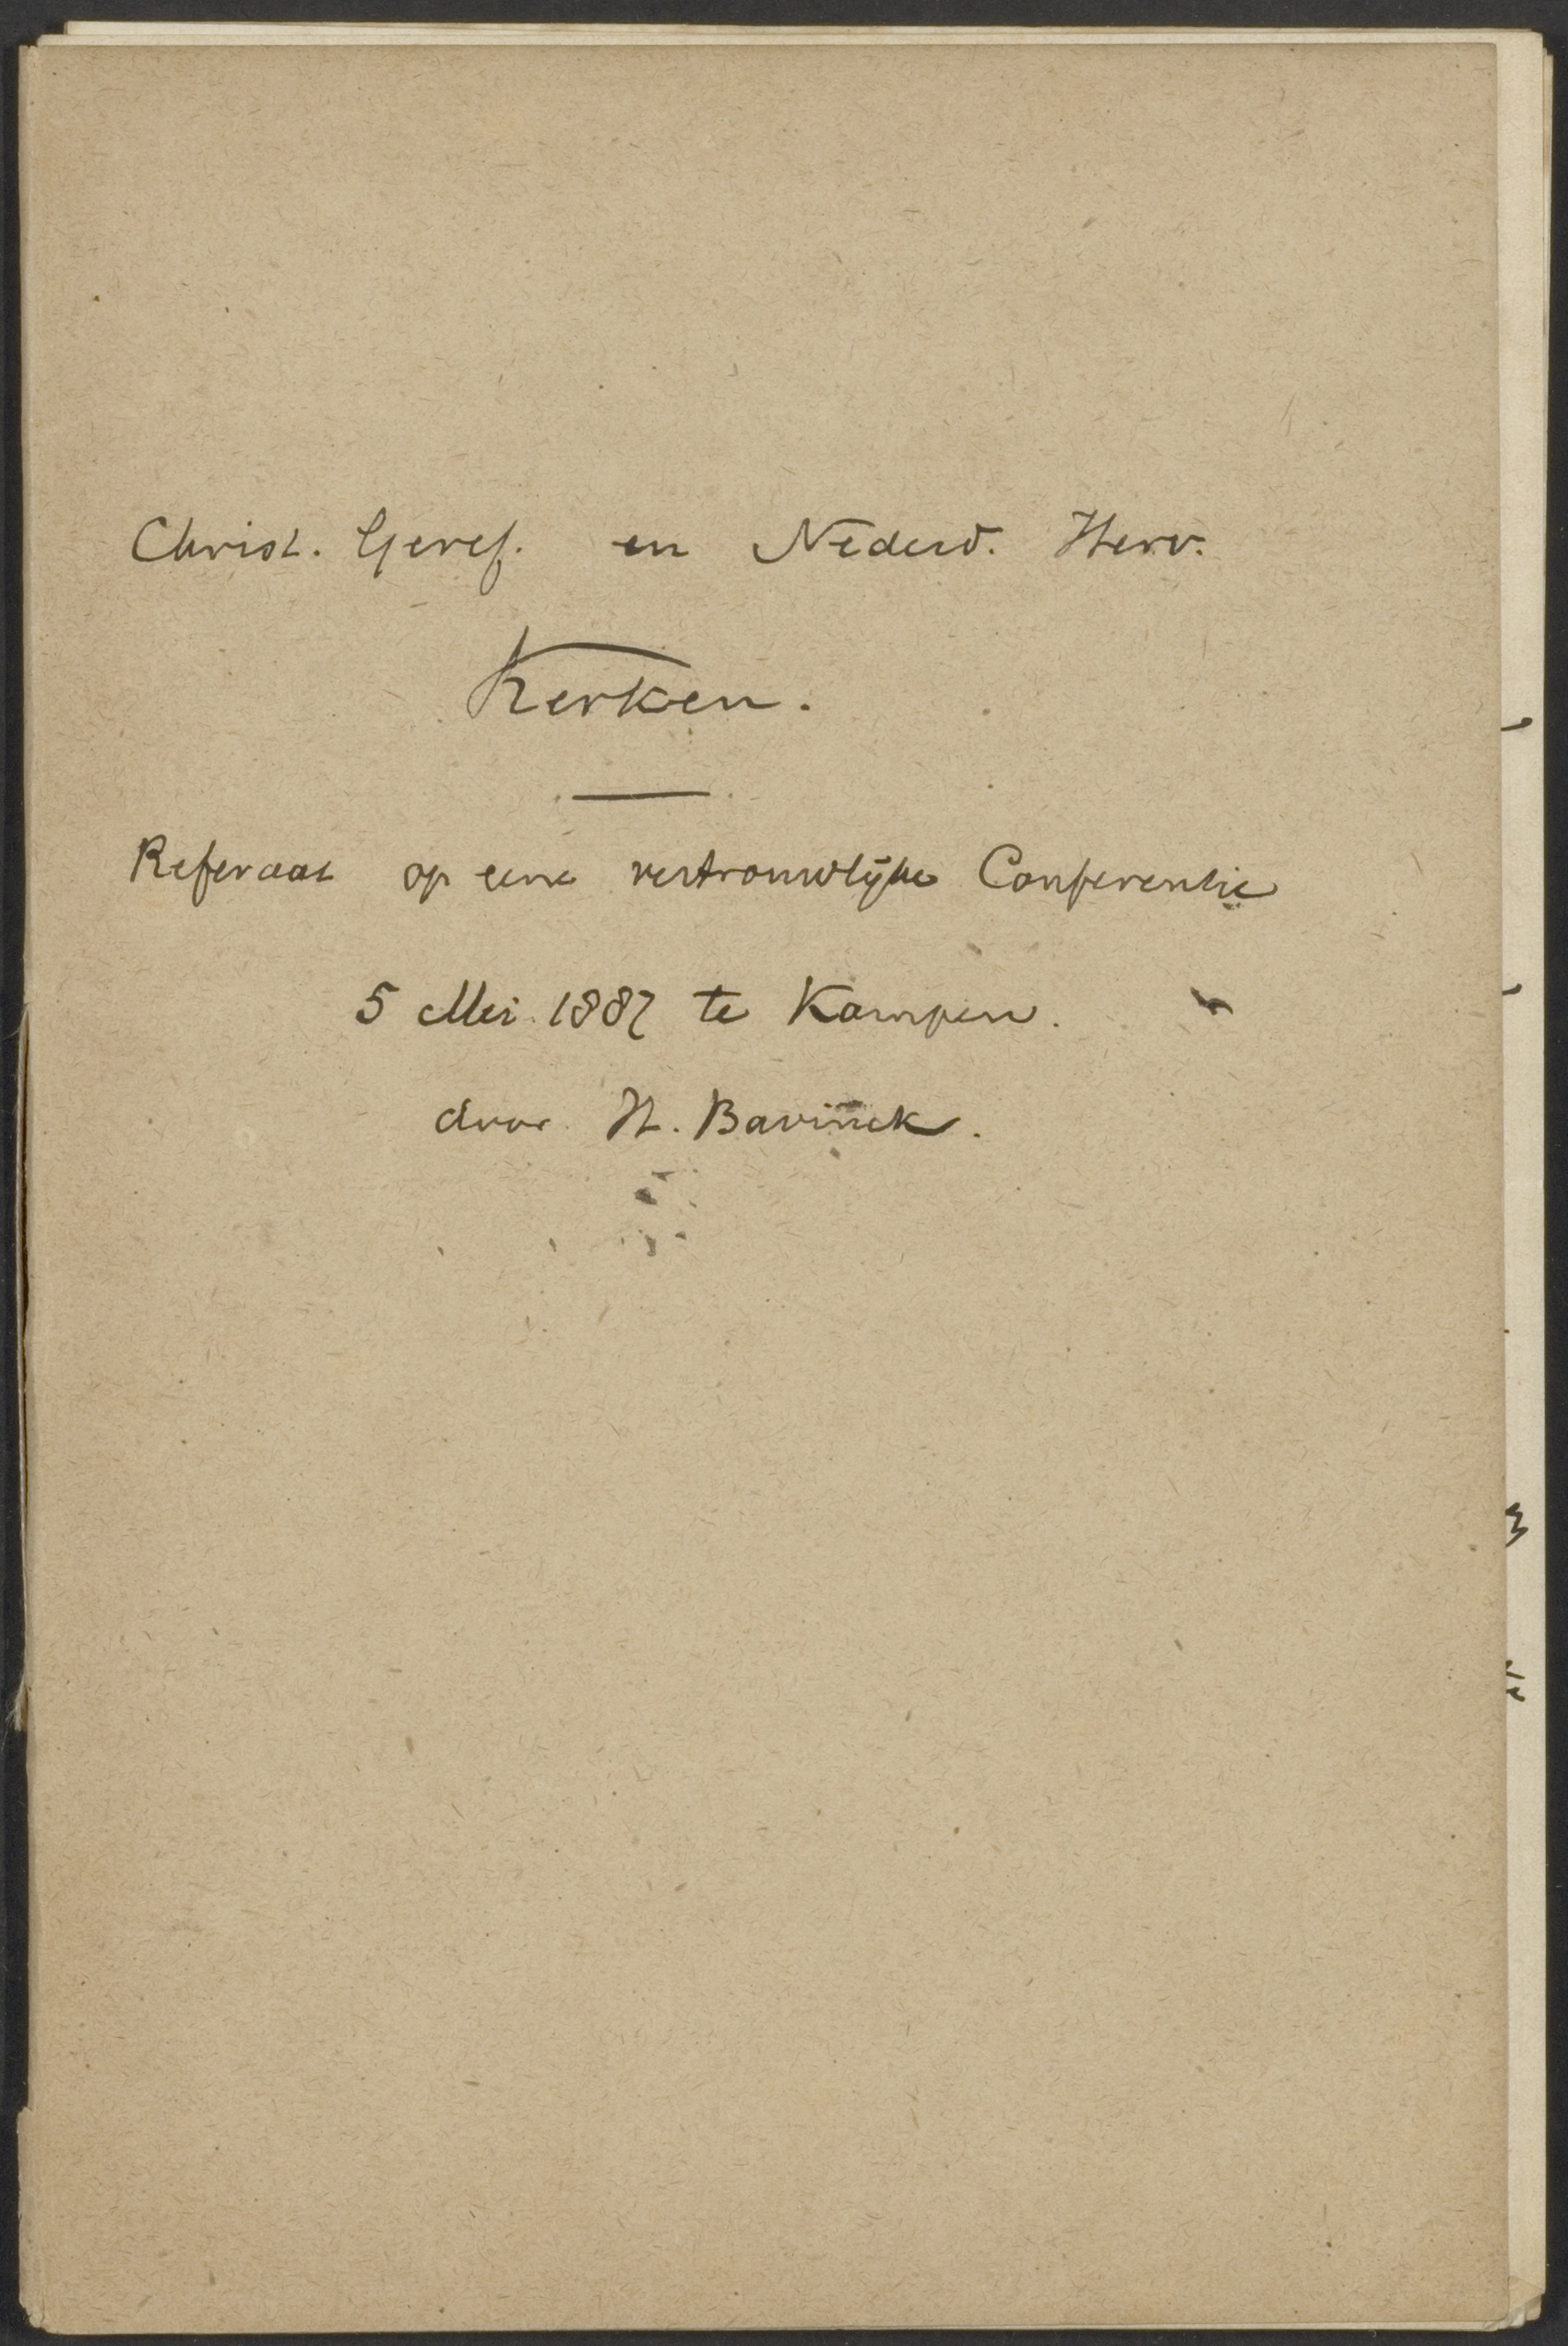 Christ. Geref. en Nederd. Herv.
Kerken.
Referaat op eene vertrouwelijke Conferentie
5 Mei 1887 te Kampen.
door H. Bavinck.